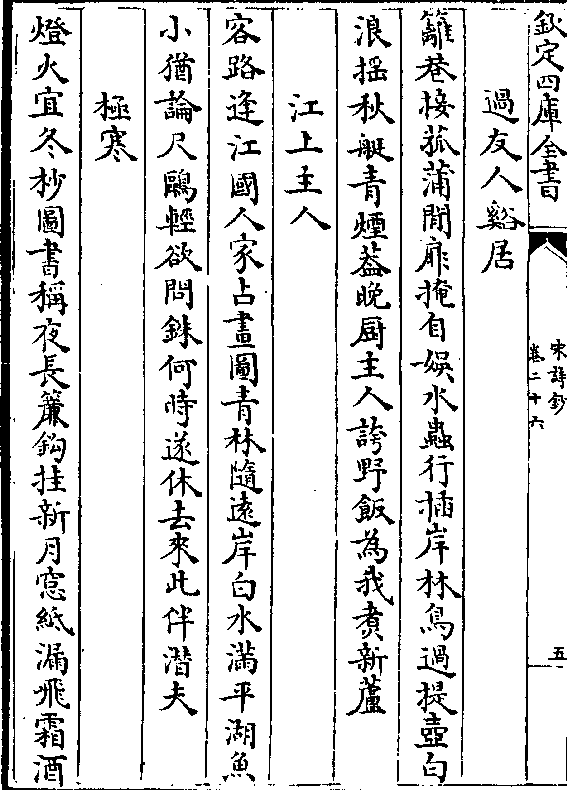 欽定四庫全書
宋詩鈔
卷二十六
五
過友人谿居
籬巷接菰蒲閒扉掩自娛水蟲行插岸林鳥過提壺白
浪揺秋艇青煙葢晚厨主人誇野飯為我煮新蘆
江上主人
客路逢江國人家占畫圖青林隨逺岸白水滿平湖魚
小猶論尺鷗輕欲問銖何時遂休去來此伴潛夫
極寒
燈火宜冬杪圖書稱夜長簾鈎挂新月窓紙漏飛霜酒